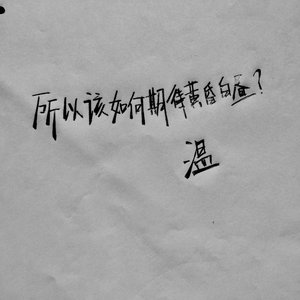 所以该如何期待黄昏白昼？
温